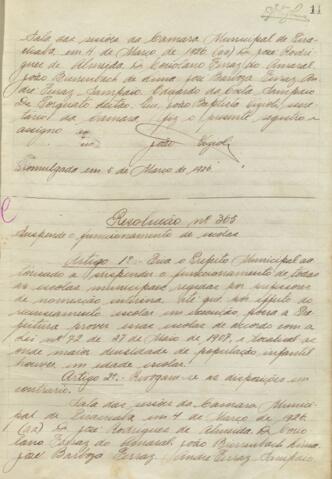 11
Sala das sessões da Camara Municipal de Piracicaba, em 4 de Março de 1926. (aa) Dr José Rodrigues de Almeida, Dr Coriolano Ferraz do Amaral,
João Bierrenbach de Lima, José Barboza Ferraz, André Ferraz Sampaio, Eduardo da Costa Sampaio
Dr Torquato Leitão. Eu, João Baptista Vizioli, secretario da Camara, fiz o presente registro e
assigno
João Vizioli
Promulgada em 5 de Março de 1926.
Resolução nº 365
Suspende o funccionamento de escolas
Artigo 1º: Fica o Prefeito Municipal auctorisado a suspender o funccionamento de todas
as escolas municipaes regidas por professores
de nomeação interina, até que por effeito do
recenseamento escolar em execução possa a Prefeitura prover essas escolas de accordo com a
Lei nº 72 de 27 de Maio de 1907, e localisal-as
onde maior densidade de população infantil
houver em edade escolar.
Artigo 2º: Revogam-se as disposições em
contrario.
Sala das sessões da Camara Municipal de Piracicaba, em 4 de Março de 1926.
(aa) Dr José Rodrigues de Almeida, Dr Coriolano Ferraz do Amaral, João Bierrenbach de Lima,
José Barboza Ferraz, André Ferraz Sampaio,